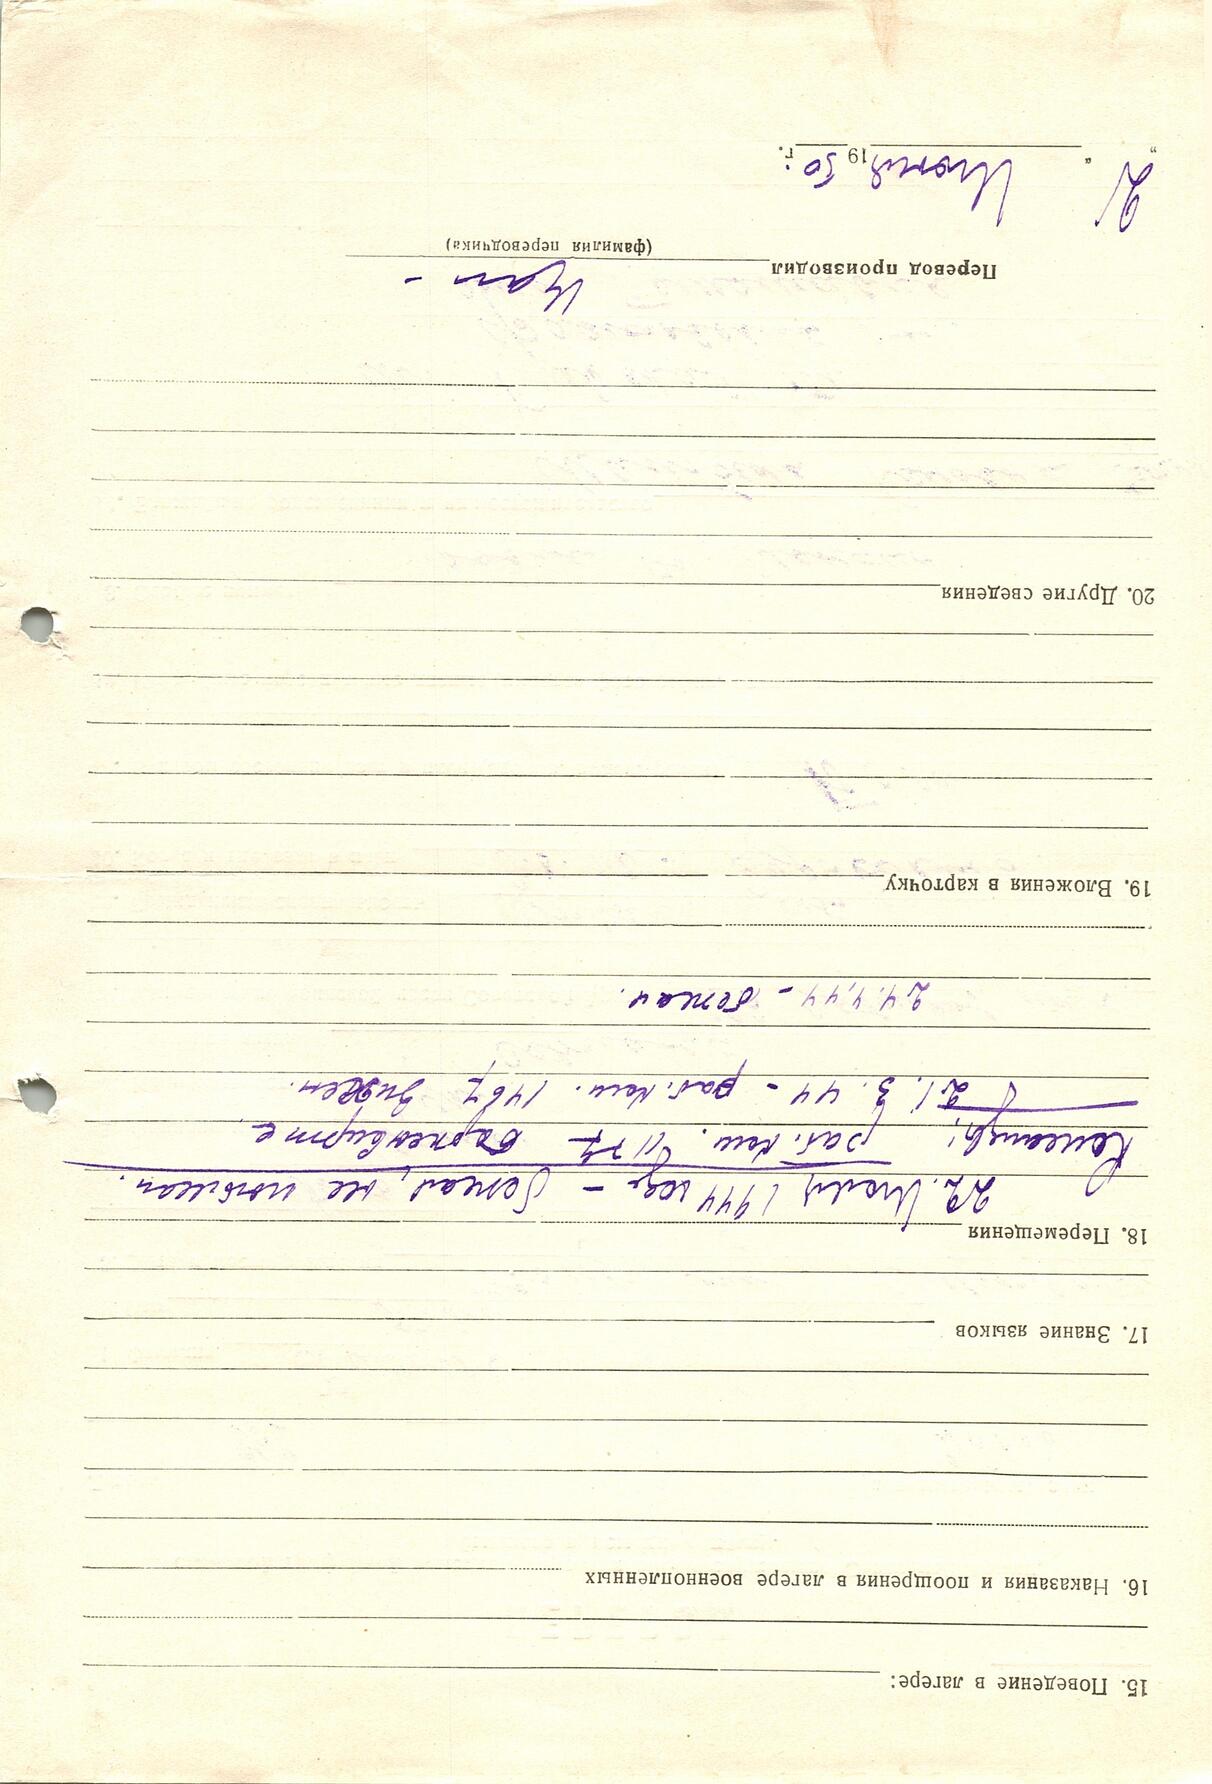 15. Поведение в лагере:
16. Наказания и поощрения в лагере военнопленных
17. Знание языков
18. Перемещения
22. Июля 1944 года – бежал, не пойман.
раб. ком.
21.3.44 – раб. ком. 1467
24.4.44 – бежал.
19. Вложения в карточку
20. Другие сведения
Перевод производил
(фамилия переводчика)
„21“ Июня 1950 г.